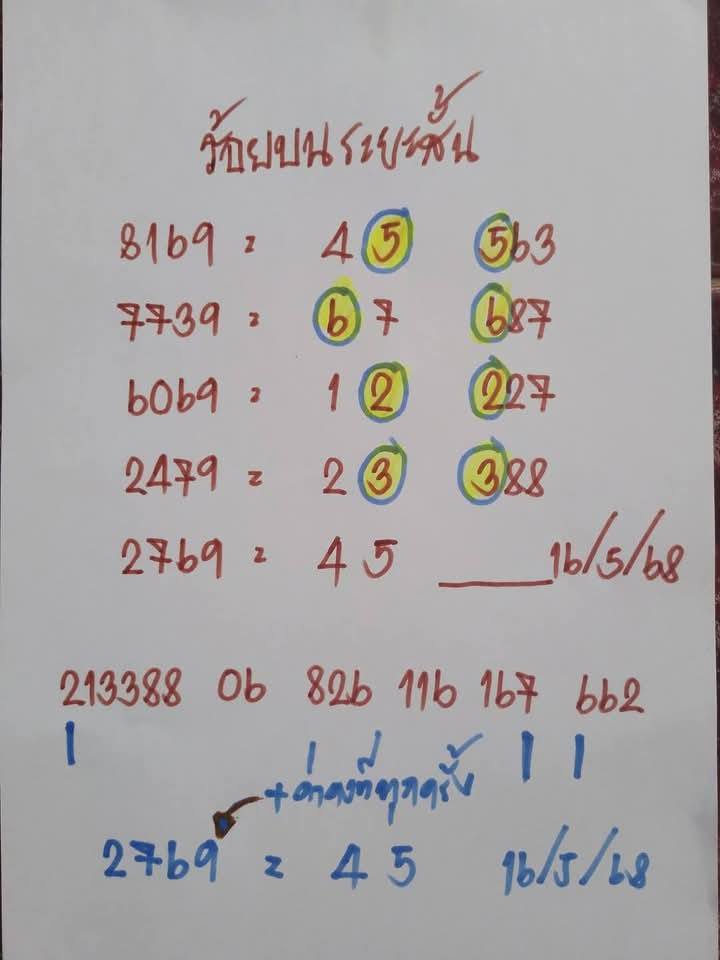 ร้อยบนระยะสั้น
8169 = 45 563
7739 = 67 687
6069 = 12 227
2479 = 23 388
2769 = 45 ___ 16/5/68
213388 06 826 116 167 662
+ค่าคงที่ทุกครั้ง
2769 = 45 16/5/68